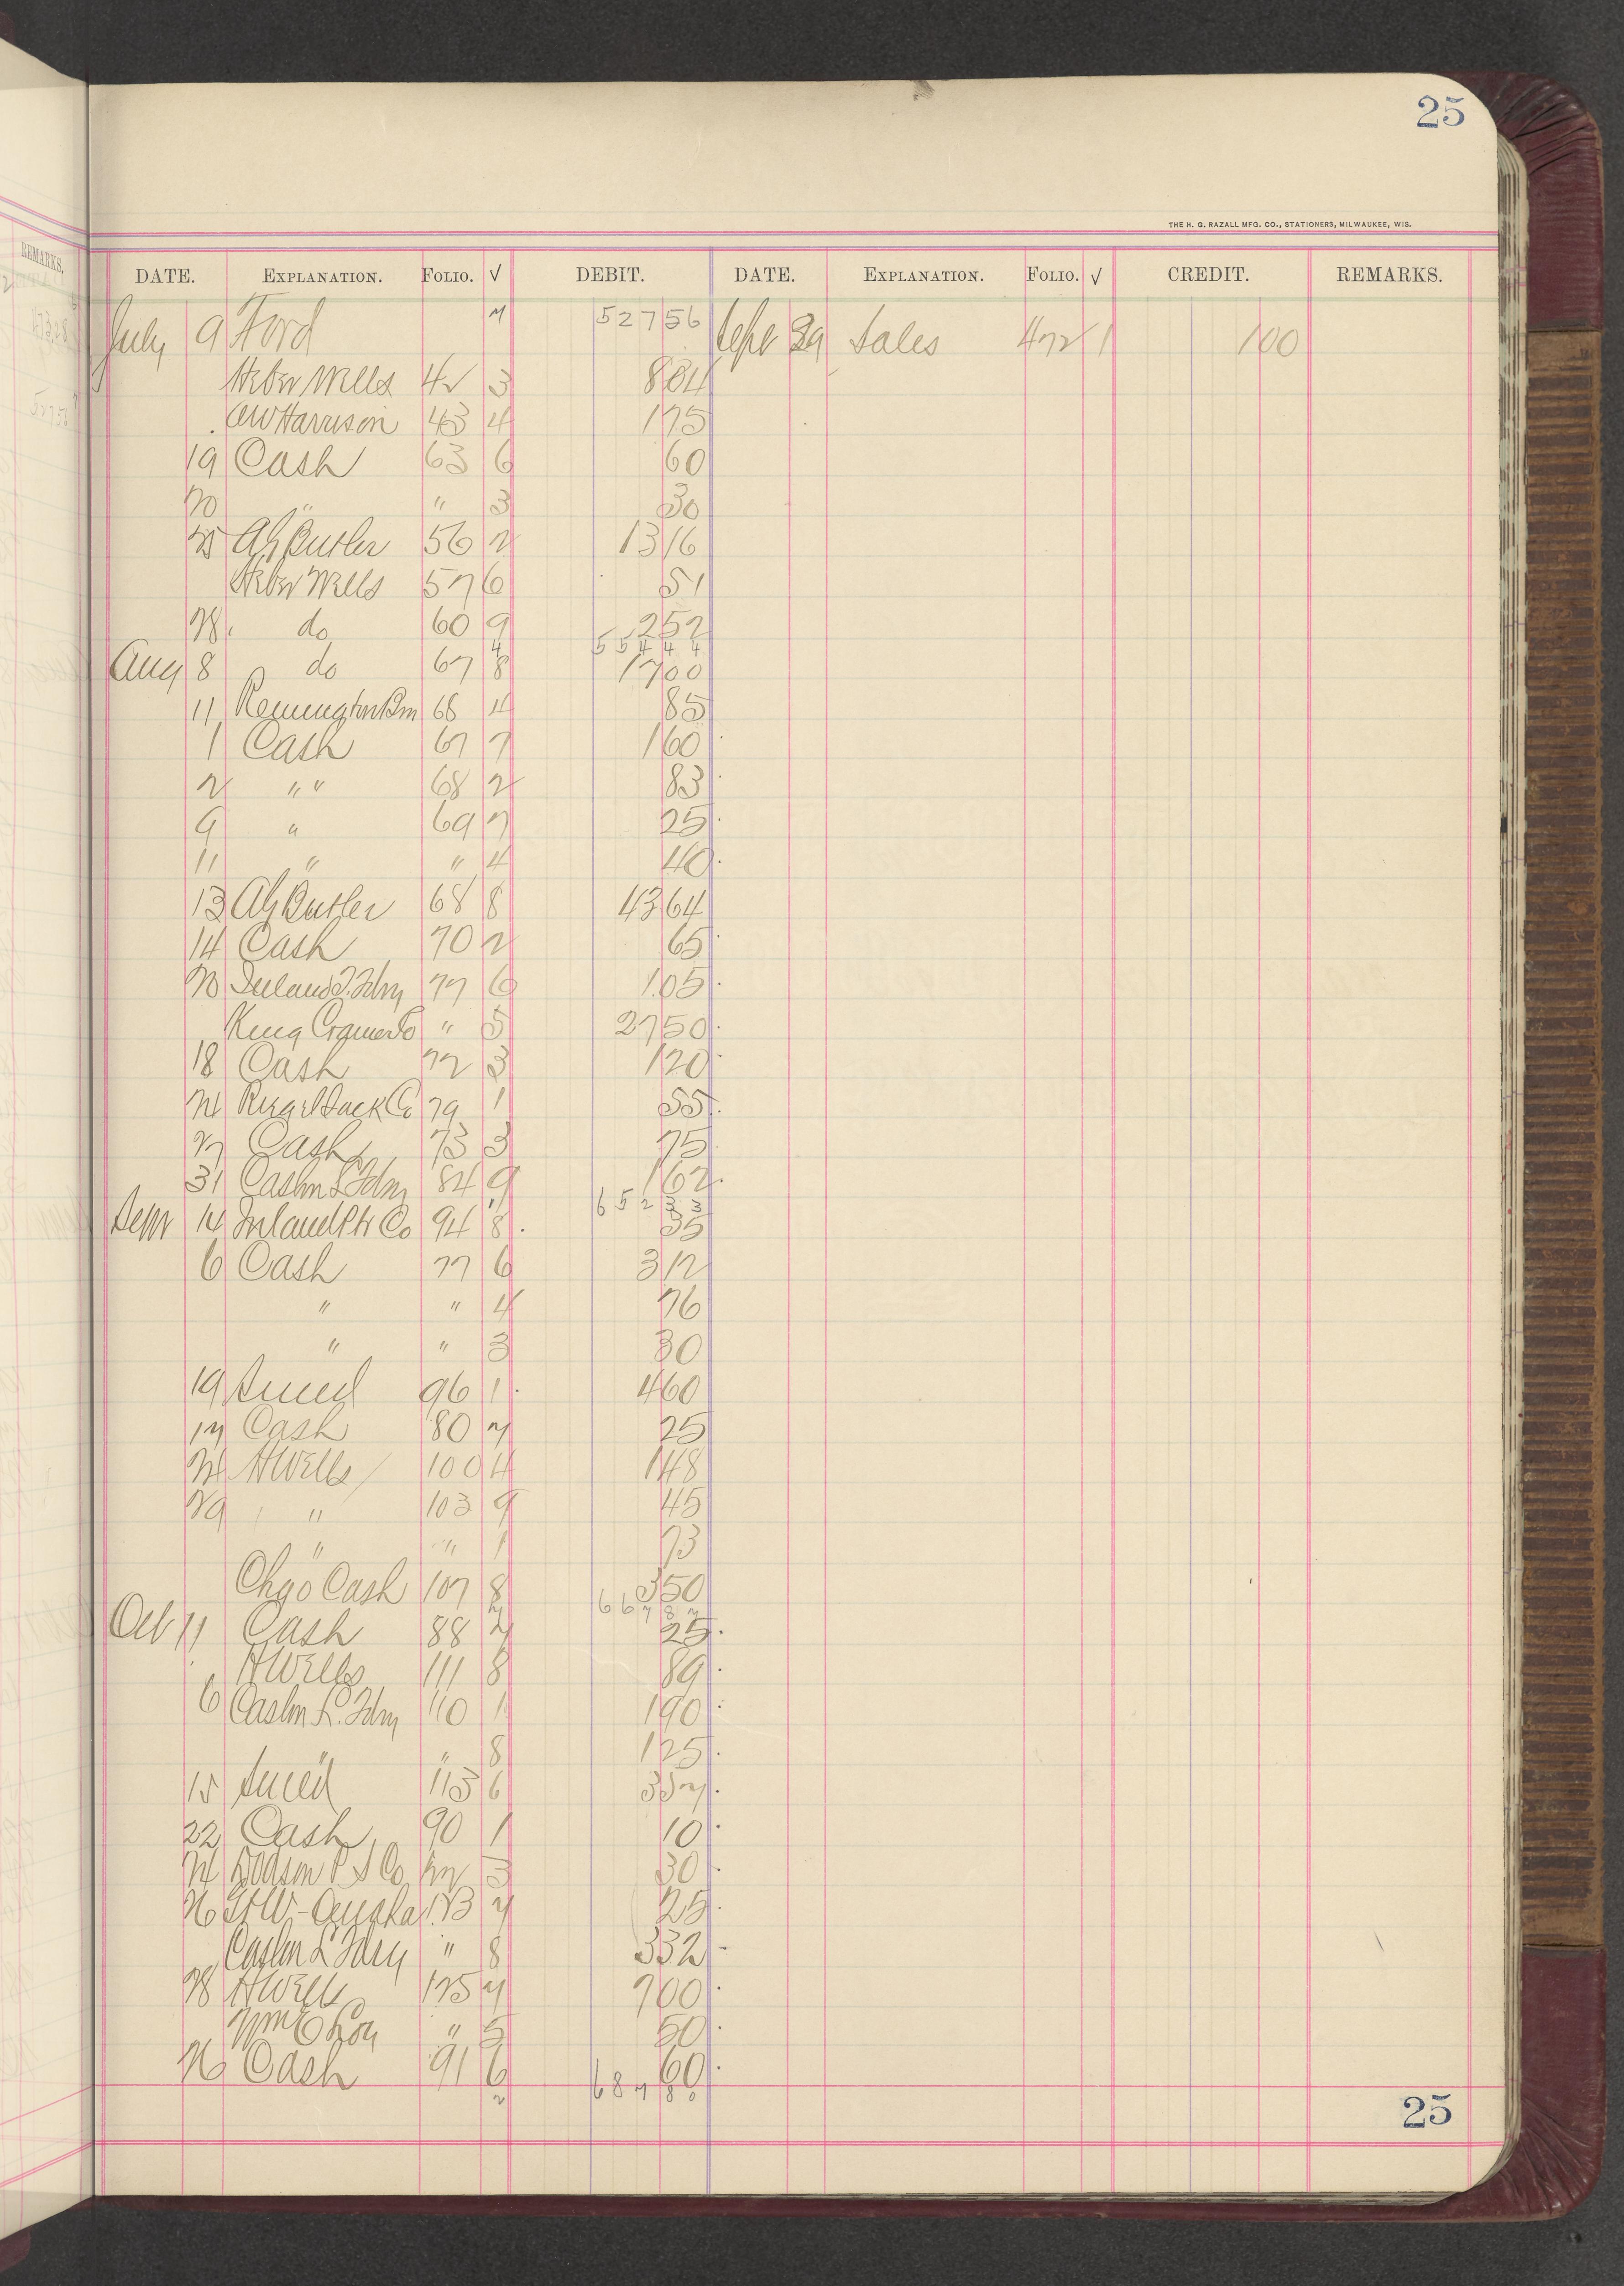 25
THE H. G. RAZALL MFG. CO., STATIONERS, MILWAUKEE, WIS.
REMARKS.
DATE. EXPLANATION. FOLIO. √ DEBIT. DATE. EXPLANATION. FOLIO. √ CREDIT. REMARKS.
July 9 Ford 7 527 56 Sept 29 Sales 472 1 1 00
Heber Wells 42 3 8 84
AW Harrison 43 4 1 75
19 Cash 63 6 60
20 " " 3 30
25 AG Butler 56 2 13 16
Heber Wells 57 6 51
28 do 60 9 2 52
4 554 44
Aug 8 do 67 8 17 00
11 Remington Bros 68 4 85
1 Cash 67 7 1 60
2 " " 68 2 83
9 " 69 7 25
11 " " 4 40
13 AG Butler 68 8 43 64
14 Cash 70 2 65
20 Inland T. Fdry 77 6 1 05
King Cramer Co " 5 27 50
18 Cash 72 3 1 20
24 Co 79 1 55
27 Cash 73 3 75
31 Caslon L Fdry 84 9 1 62
1 652 33
Sept 14 Inland Ptr Co 94 8 35
6 Cash 77 6 3 12
" " 4 76
" " 3 30
19 Sneed 96 1 4 60
17 Cash 80 7 25
24 H Wells 100 4 1 48
29 " 103 9 45
" " 1 73
Chgo Cash 107 8 3 50
7 667 87
Oct 11 Cash 88 7 25
H Wells 111 8 89
6 Caslon L. Fdry 110 1 1 90
" " 8 1 25
15 Sneed 113 6 3 57
22 Cash 90 1 10
24 Dodson P S Co 3 30
26 Omaha 123 7 25
Caslon L Fdry " 8 3 32
28 H Wells 125 7 7 00
" 5 50
26 Cash 91 6 60
2 687 80
25